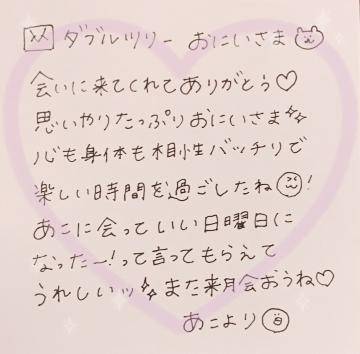 ダブルツリー おにいさま
会いに来てくれてありがとう♡
思いやりたっぷりおにいさま
心も身体も相性バッチリで
楽しい時間を過ごしたね!
あこに会っていい日曜日に
なったー!って言ってもらえて
うれしいッまた来月会おうね♡
あこより